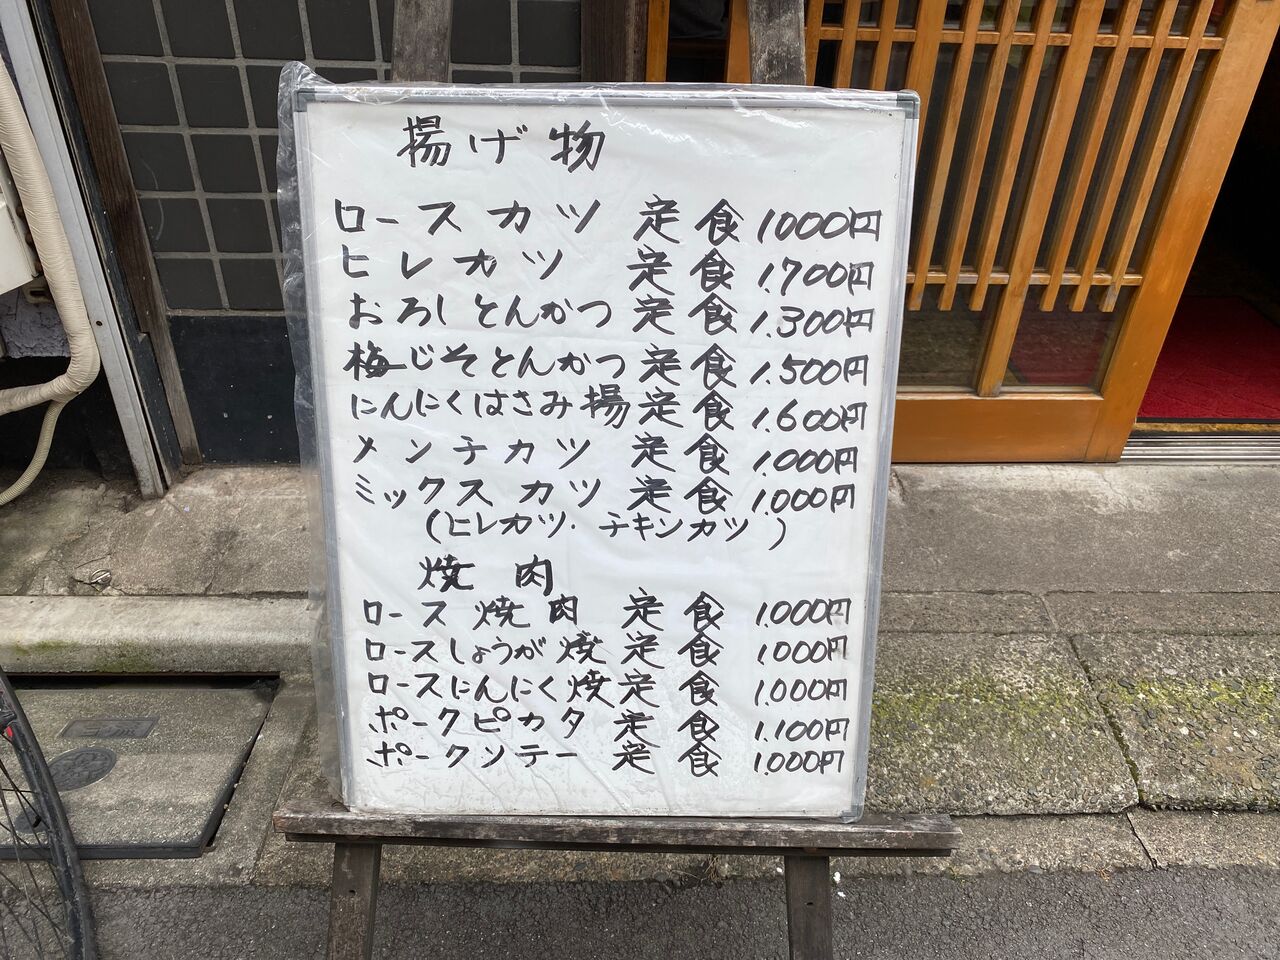 揚げ物
ロースカツ 定食 1000円
ヒレカツ 定食 1.700円
おろしとんかつ 定食 1.300円
梅じそとんかつ 定食 1.500円
にんにくはさみ揚定食 1.600円
メンチカツ 定食 1.000円
ミックスカツ 定食 1.000円
(ヒレカツ・チキンカツ)
焼肉
ロース焼肉 定食 1.000円
ロースしょうが焼定食 1.000円
ロースにんにく焼定食 1.000円
ポークピカタ 定食 1.100円
ポークソテー 定食 1.000円